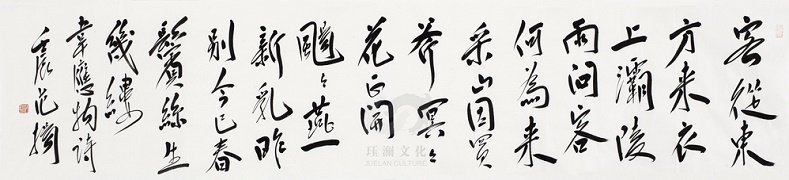 客從東
方來衣
上灞陵
雨問客
何為來
采山因買
斧冥々
花正開
颺々燕
新乳昨
別今已春
鬢絲生
幾縷
韋應物詩
壬辰范
珏澜文化
JUELAN CULTURE